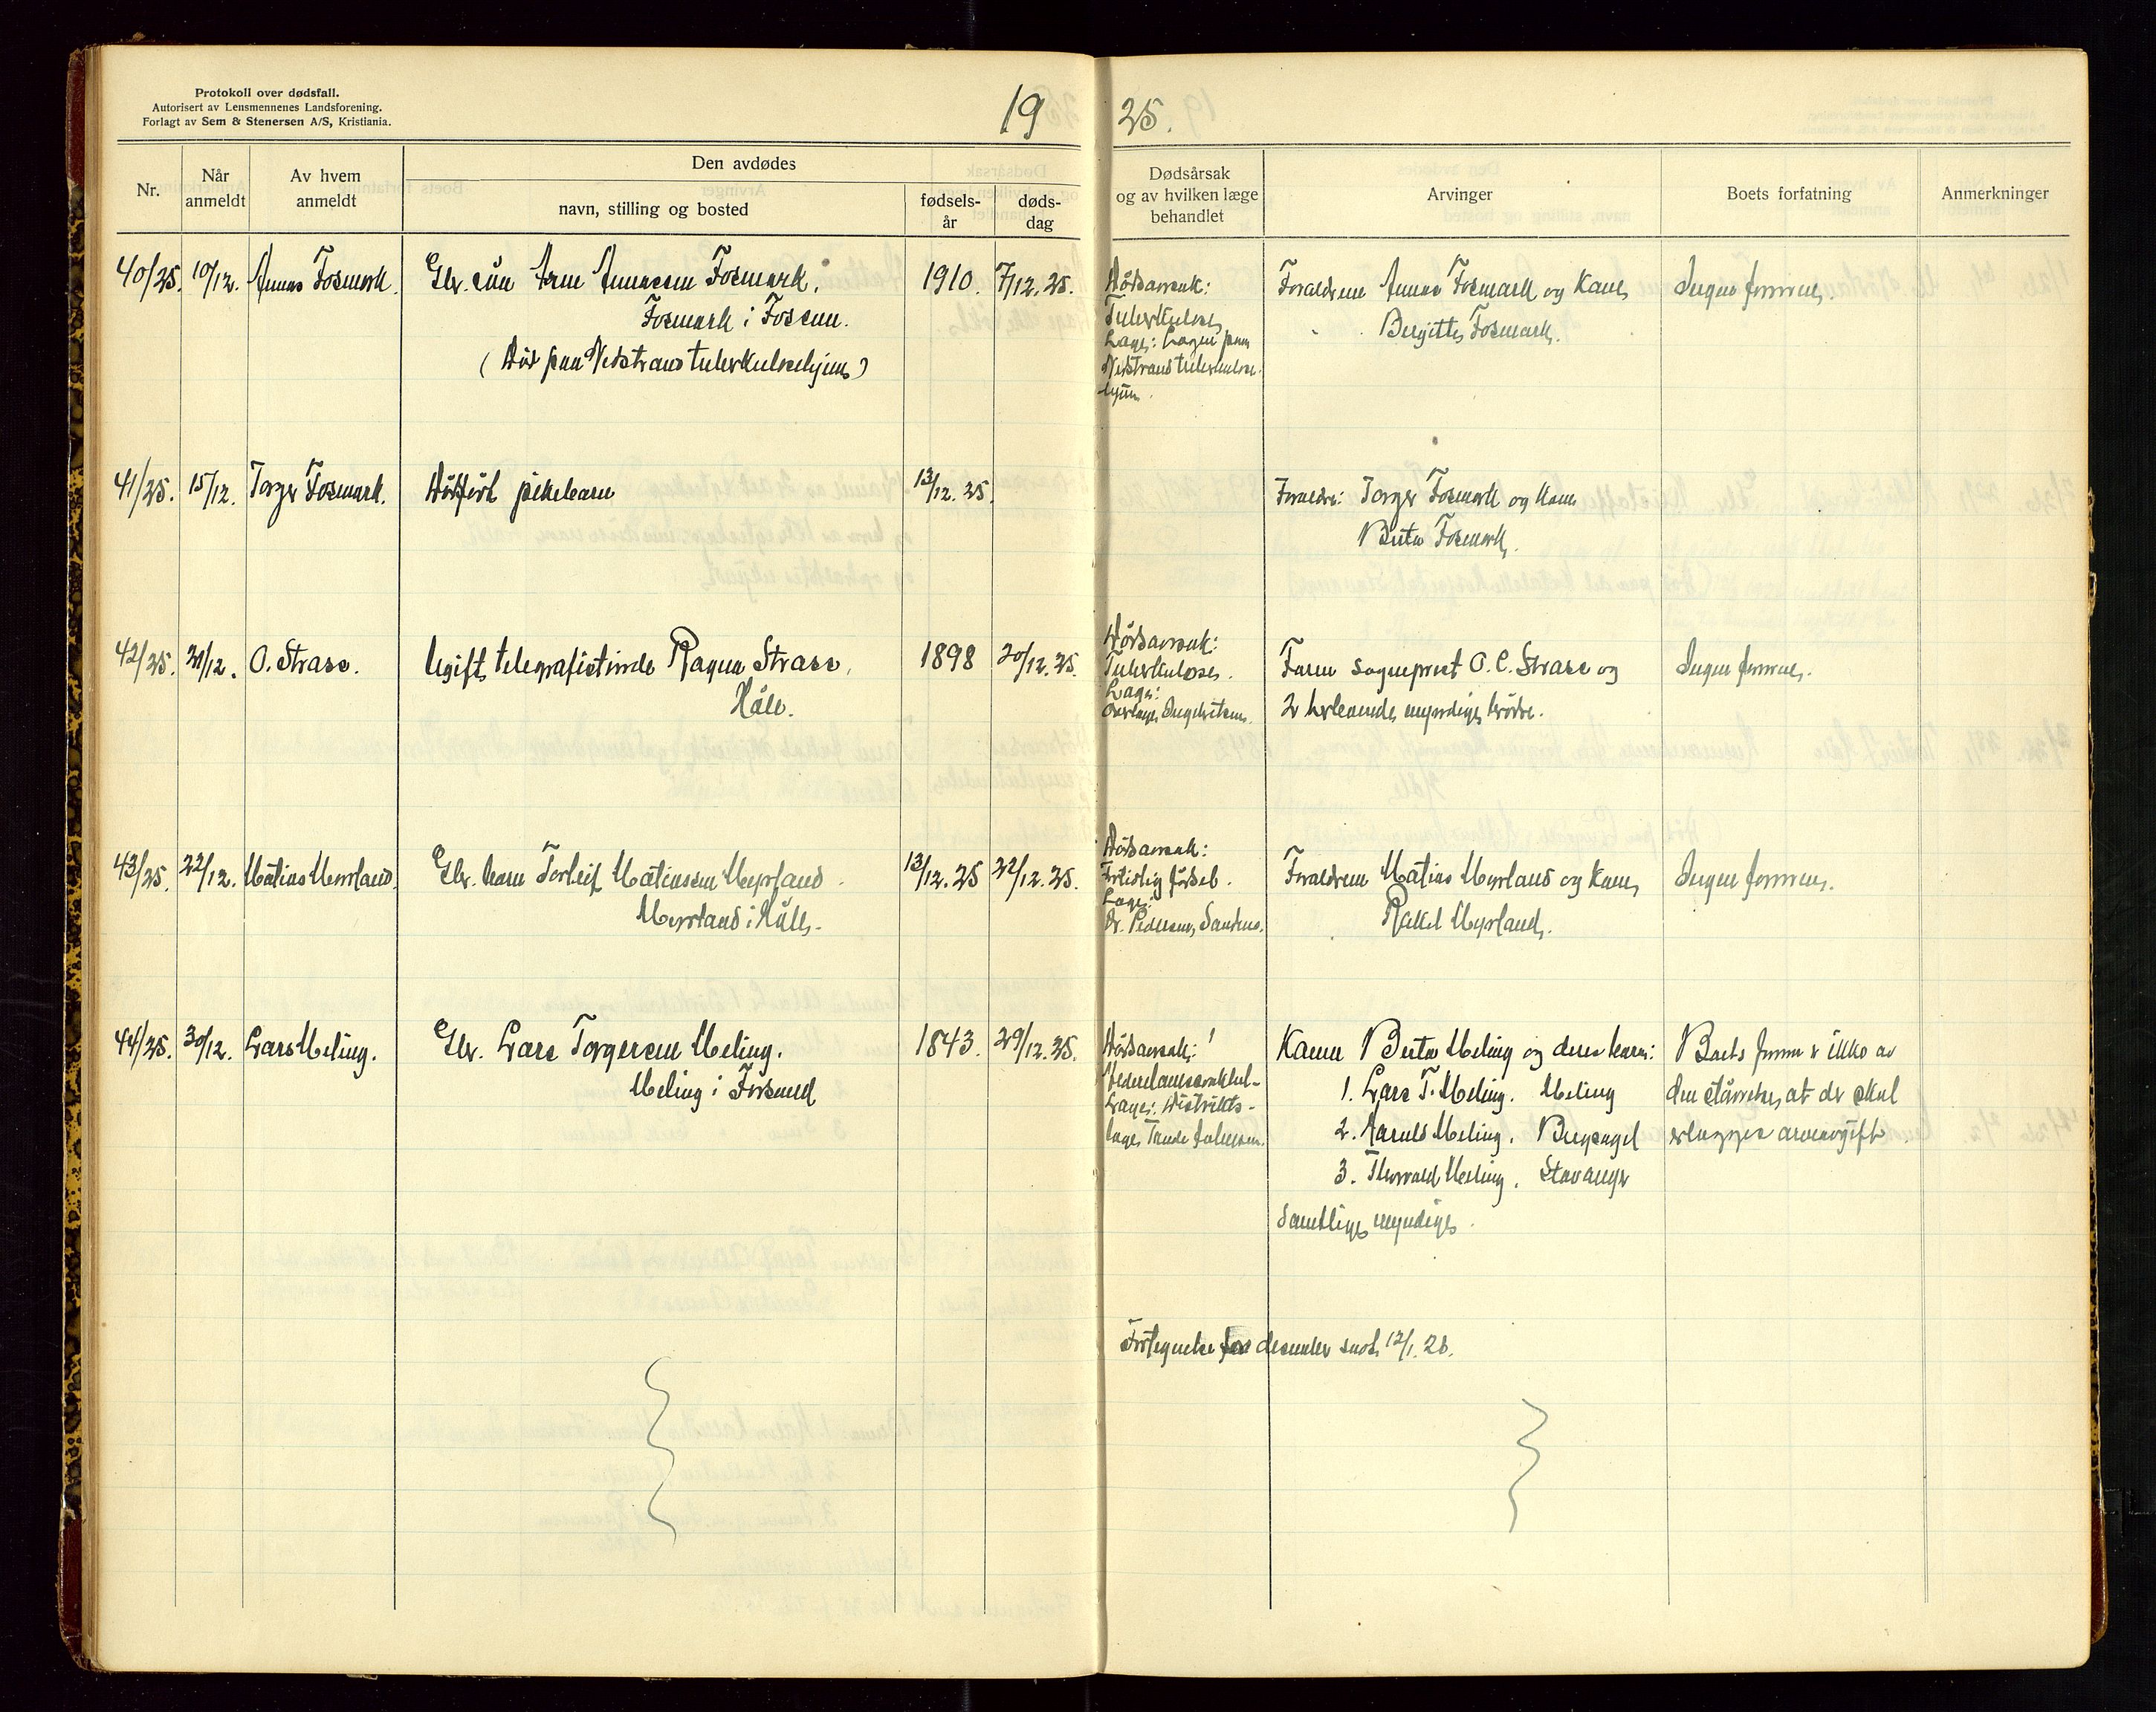 Protokoll over dødsfall.
Autorisert av Lensmennenes Landsforening.
Forlagt av Sem & Stenersen A/S, Kristiania.
19 25.
Nr.
Når anmeldt
Av hvem anmeldt
Den avdødes
navn, stilling og bosted
fødsels-år
døds-dag
Dødsårsak og av hvilken læge behandlet
Arvinger
Boets forfatning
Anmerkninger
40/25. 10/12. Fosmark. Fosmark. 1910. 7/12. 25.
Fosmark i Fossan.
(Död paa Nedstrand tuberkulosehjem)
Dödsaarsak:
Tuberkulose
Læge: Lægen paa
Nedstrand tuberkulose-
hjem.
Forældrene Fosmark og Kone
Bergitte Fosmark.
Ingen formue.
41/25. 15/12. Torger Fosmark. Dödfödt pikebarn 13/12. 25.
Forældre: Torger Fosmark og Kone
Berta Fosmark.
42/25. 21/12. O. Strass. Ugift telegrafistinde Ragna Strass, 1898 20/12. 25.
Håle.
Dödsaarsak:
Tuberkulose.
Læge:
Overlæge
Faren sogneprest O. C. Strass og
2 herlevende myndige brödre.
Ingen formue.
43/25. 22/12. Matias Myrland. Elv. barn Torleif Matiassen Myrland 13/12. 25 22/12. 25.
Myrland i Håle.
Dödsaarsak:
Fortidlig födsel.
Læge:
Dr. Pedersen, Sandnes.
Forældrene Matias Myrland og Kone
Rakel Myrland.
Ingen formue.
44/25. 30/12. Lars Meling. Elv. Lars Torgersen Meling. 1843. 29/12. 25.
Meling i Forsand
Dödsaarsak:
Læge: Distrikts-
læge Tande
Konen Berta Meling og deres barn:
1. Lars T. Meling. Meling
2. Meling. Bergsagel
3. Thorvald Meling. Stavanger
Samtlige myndige.
Boets formue er ikke av
den störrelse, at der skal
erlægges arveavgift.
Fortegnelse for desember send. 12/1. 26.